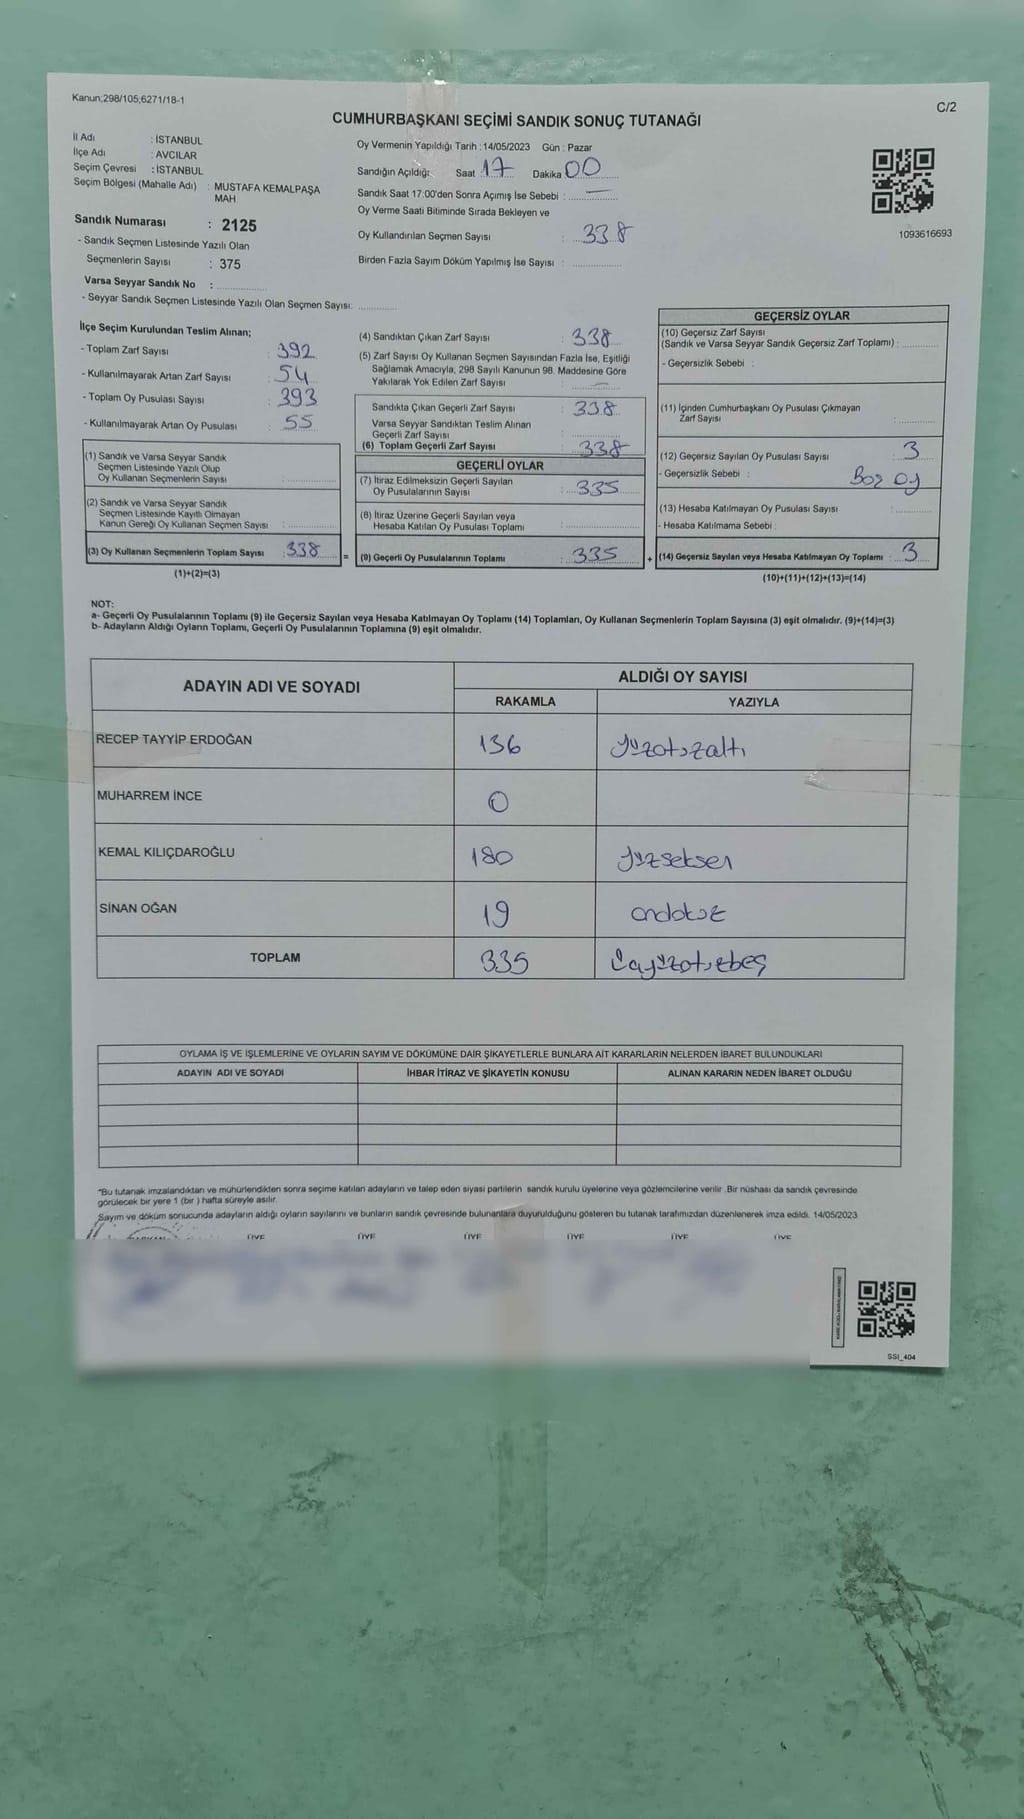 Kanun;298/105;6271/18-1
C/2
CUMHURBAŞKANI SEÇİMİ SANDIK SONUÇ TUTANAĞI
İl Adı : İSTANBUL
İlçe Adı : AVCILAR
Seçim Çevresi : İSTANBUL
Seçim Bölgesi (Mahalle Adı) : MUSTAFA KEMALPAŞA
MAH
Sandık Numarası : 2125
- Sandık Seçmen Listesinde Yazılı Olan
Seçmenlerin Sayısı : 375
Varsa Seyyar Sandık No :
- Seyyar Sandık Seçmen Listesinde Yazılı Olan Seçmen Sayısı:
Oy Vermenin Yapıldığı Tarih : 14/05/2023 Gün : Pazar
Sandığın Açıldığı: Saat 17 Dakika 00
Sandık Saat 17:00'den Sonra Açımış İse Sebebi : —
Oy Verme Saati Bitiminde Sırada Bekleyen ve
Oy Kullandırılan Seçmen Sayısı : 338
Birden Fazla Sayım Döküm Yapılmış İse Sayısı :
1093616693
İlçe Seçim Kurulundan Teslim Alınan;
- Toplam Zarf Sayısı : 392
- Kullanılmayarak Artan Zarf Sayısı : 54
- Toplam Oy Pusulası Sayısı : 393
- Kullanılmayarak Artan Oy Pusulası : 55
(1) Sandık ve Varsa Seyyar Sandık
Seçmen Listesinde Yazılı Olup
Oy Kullanan Seçmenlerin Sayısı :
(2) Sandık ve Varsa Seyyar Sandık
Seçmen Listesinde Kayıtlı Olmayan
Kanun Gereği Oy Kullanan Seçmen Sayısı :
(3) Oy Kullanan Seçmenlerin Toplam Sayısı : 338
(1)+(2)=(3)
=
(4) Sandıktan Çıkan Zarf Sayısı : 338
(5) Zarf Sayısı Oy Kullanan Seçmen Sayısından Fazla İse, Eşitliği
Sağlamak Amacıyla, 298 Sayılı Kanunun 98. Maddesine Göre
Yakılarak Yok Edilen Zarf Sayısı : —
Sandıkta Çıkan Geçerli Zarf Sayısı : 338
Varsa Seyyar Sandıktan Teslim Alınan
Geçerli Zarf Sayısı :
(6) Toplam Geçerli Zarf Sayısı : 338
GEÇERLİ OYLAR
(7) İtiraz Edilmeksizin Geçerli Sayılan
Oy Pusulalarının Sayısı : 335
(8) İtiraz Üzerine Geçerli Sayılan veya
Hesaba Katılan Oy Pusulası Toplamı :
(9) Geçerli Oy Pusulalarının Toplamı : 335
+
GEÇERSİZ OYLAR
(10) Geçersiz Zarf Sayısı
(Sandık ve Varsa Seyyar Sandık Geçersiz Zarf Toplamı) :
- Geçersizlik Sebebi :
(11) İçinden Cumhurbaşkanı Oy Pusulası Çıkmayan
Zarf Sayısı :
(12) Geçersiz Sayılan Oy Pusulası Sayısı : 3
- Geçersizlik Sebebi : Boş oy
(13) Hesaba Katılmayan Oy Pusulası Sayısı :
- Hesaba Katılmama Sebebi :
(14) Geçersiz Sayılan veya Hesaba Katılmayan Oy Toplamı : 3
(10)+(11)+(12)+(13)=(14)
NOT:
a- Geçerli Oy Pusulalarının Toplamı (9) ile Geçersiz Sayılan veya Hesaba Katılmayan Oy Toplamı (14) Toplamları, Oy Kullanan Seçmenlerin Toplam Sayısına (3) eşit olmalıdır. (9)+(14)=(3)
b- Adayların Aldığı Oyların Toplamı, Geçerli Oy Pusulalarının Toplamına (9) eşit olmalıdır.
ADAYIN ADI VE SOYADI ALDIĞI OY SAYISI
RAKAMLA YAZIYLA
RECEP TAYYİP ERDOĞAN 136 Yüzotuzaltı
MUHARREM İNCE 0
KEMAL KILIÇDAROĞLU 180 Yüzseksen
SİNAN OĞAN 19 ondokuz
TOPLAM 335 Üçyüzotuzbeş
OYLAMA İŞ VE İŞLEMLERİNE VE OYLARIN SAYIM VE DÖKÜMÜNE DAİR ŞİKAYETLERLE BUNLARA AİT KARARLARIN NELERDEN İBARET BULUNDUKLARI
ADAYIN ADI VE SOYADI İHBAR İTİRAZ VE ŞİKAYETİN KONUSU ALINAN KARARIN NEDEN İBARET OLDUĞU
*Bu tutanak imzalandıktan ve mühürlendikten sonra seçime katılan adayların ve talep eden siyasi partilerin sandık kurulu üyelerine veya gözlemcilerine verilir .Bir nüshası da sandık çevresinde
görülecek bir yere 1 (bir ) hafta süreyle asılır.
Sayım ve döküm sonucunda adayların aldığı oyların sayılarını ve bunların sandık çevresinde bulunanlara duyurulduğunu gösteren bu tutanak tarafımızdan düzenlenerek imza edildi. 14/05/2023
BAŞKAN ÜYE ÜYE ÜYE ÜYE ÜYE ÜYE
SSI_404